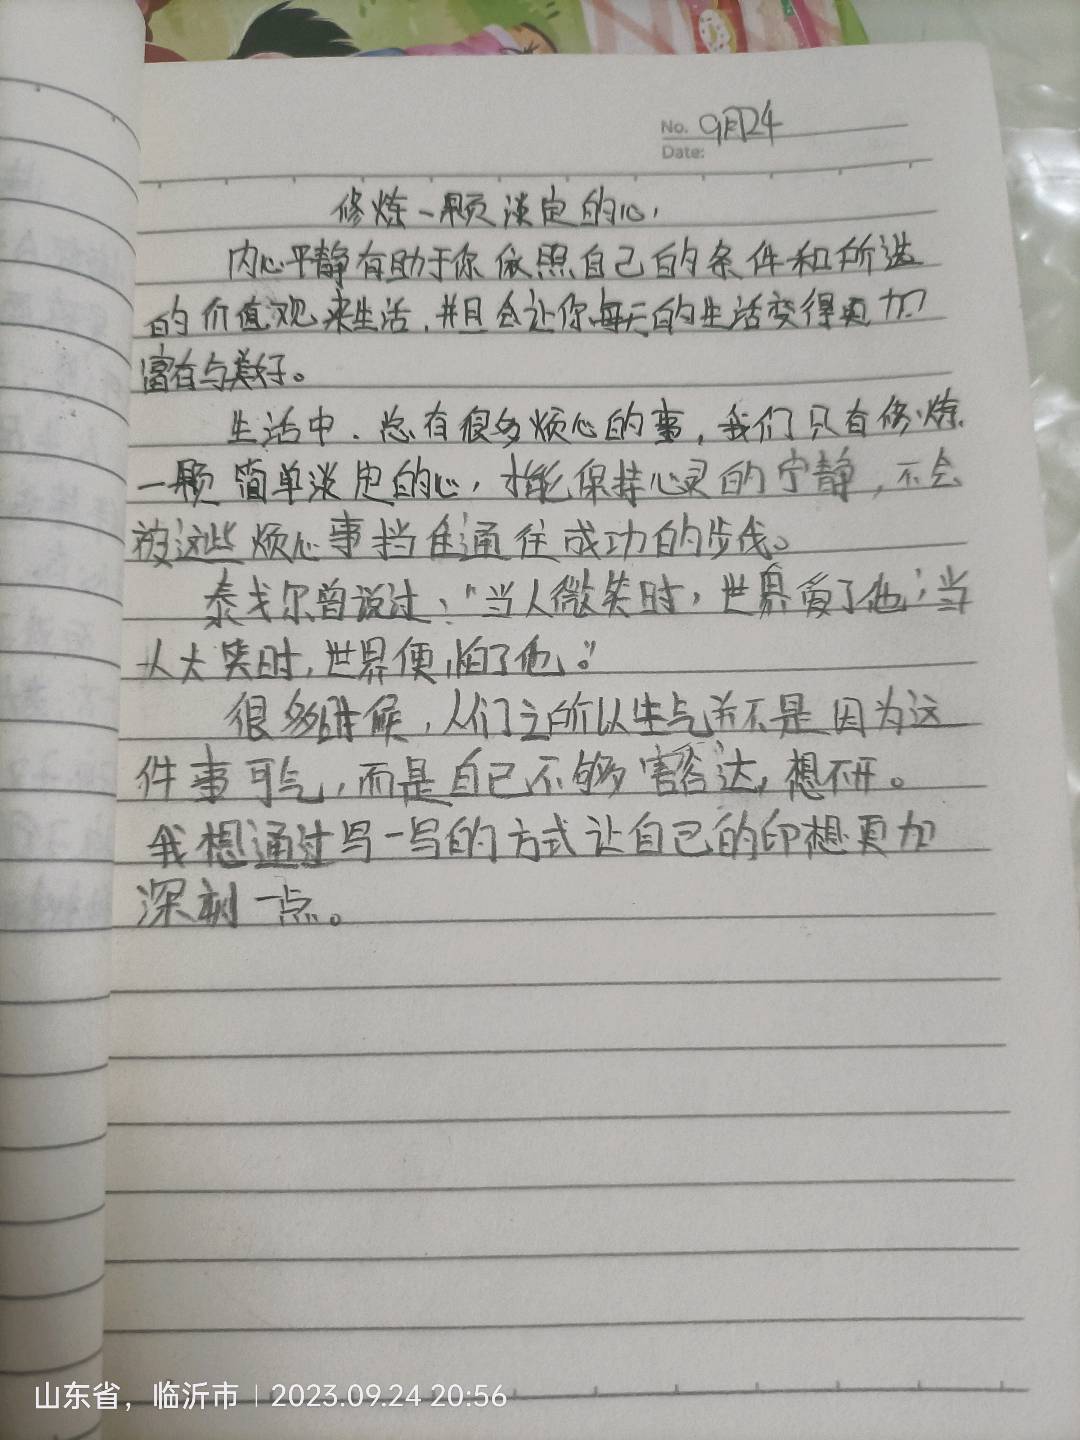 No. 9月24
Date:
修炼一颗淡定的心，
内心平静有助于你依照自己的条件和所选
的价值观来生活，并且会让你每天的生活变得更加
富有与美好。
生活中，总有很多烦心的事，我们只有修炼
一颗简单淡定的心，才能保持心灵的宁静，不会
被这些烦心事挡住通往成功的步伐。
泰戈尔曾说过："当人微笑时，世界爱了他；当
人大笑时，世界便怕了他。"
很多时候，人们之所以生气并不是因为这
件事可气，而是自己不够豁达，想不开。
我想通过写一写的方式让自己的印想更加
深刻一点。
山东省，临沂市 | 2023.09.24 20:56